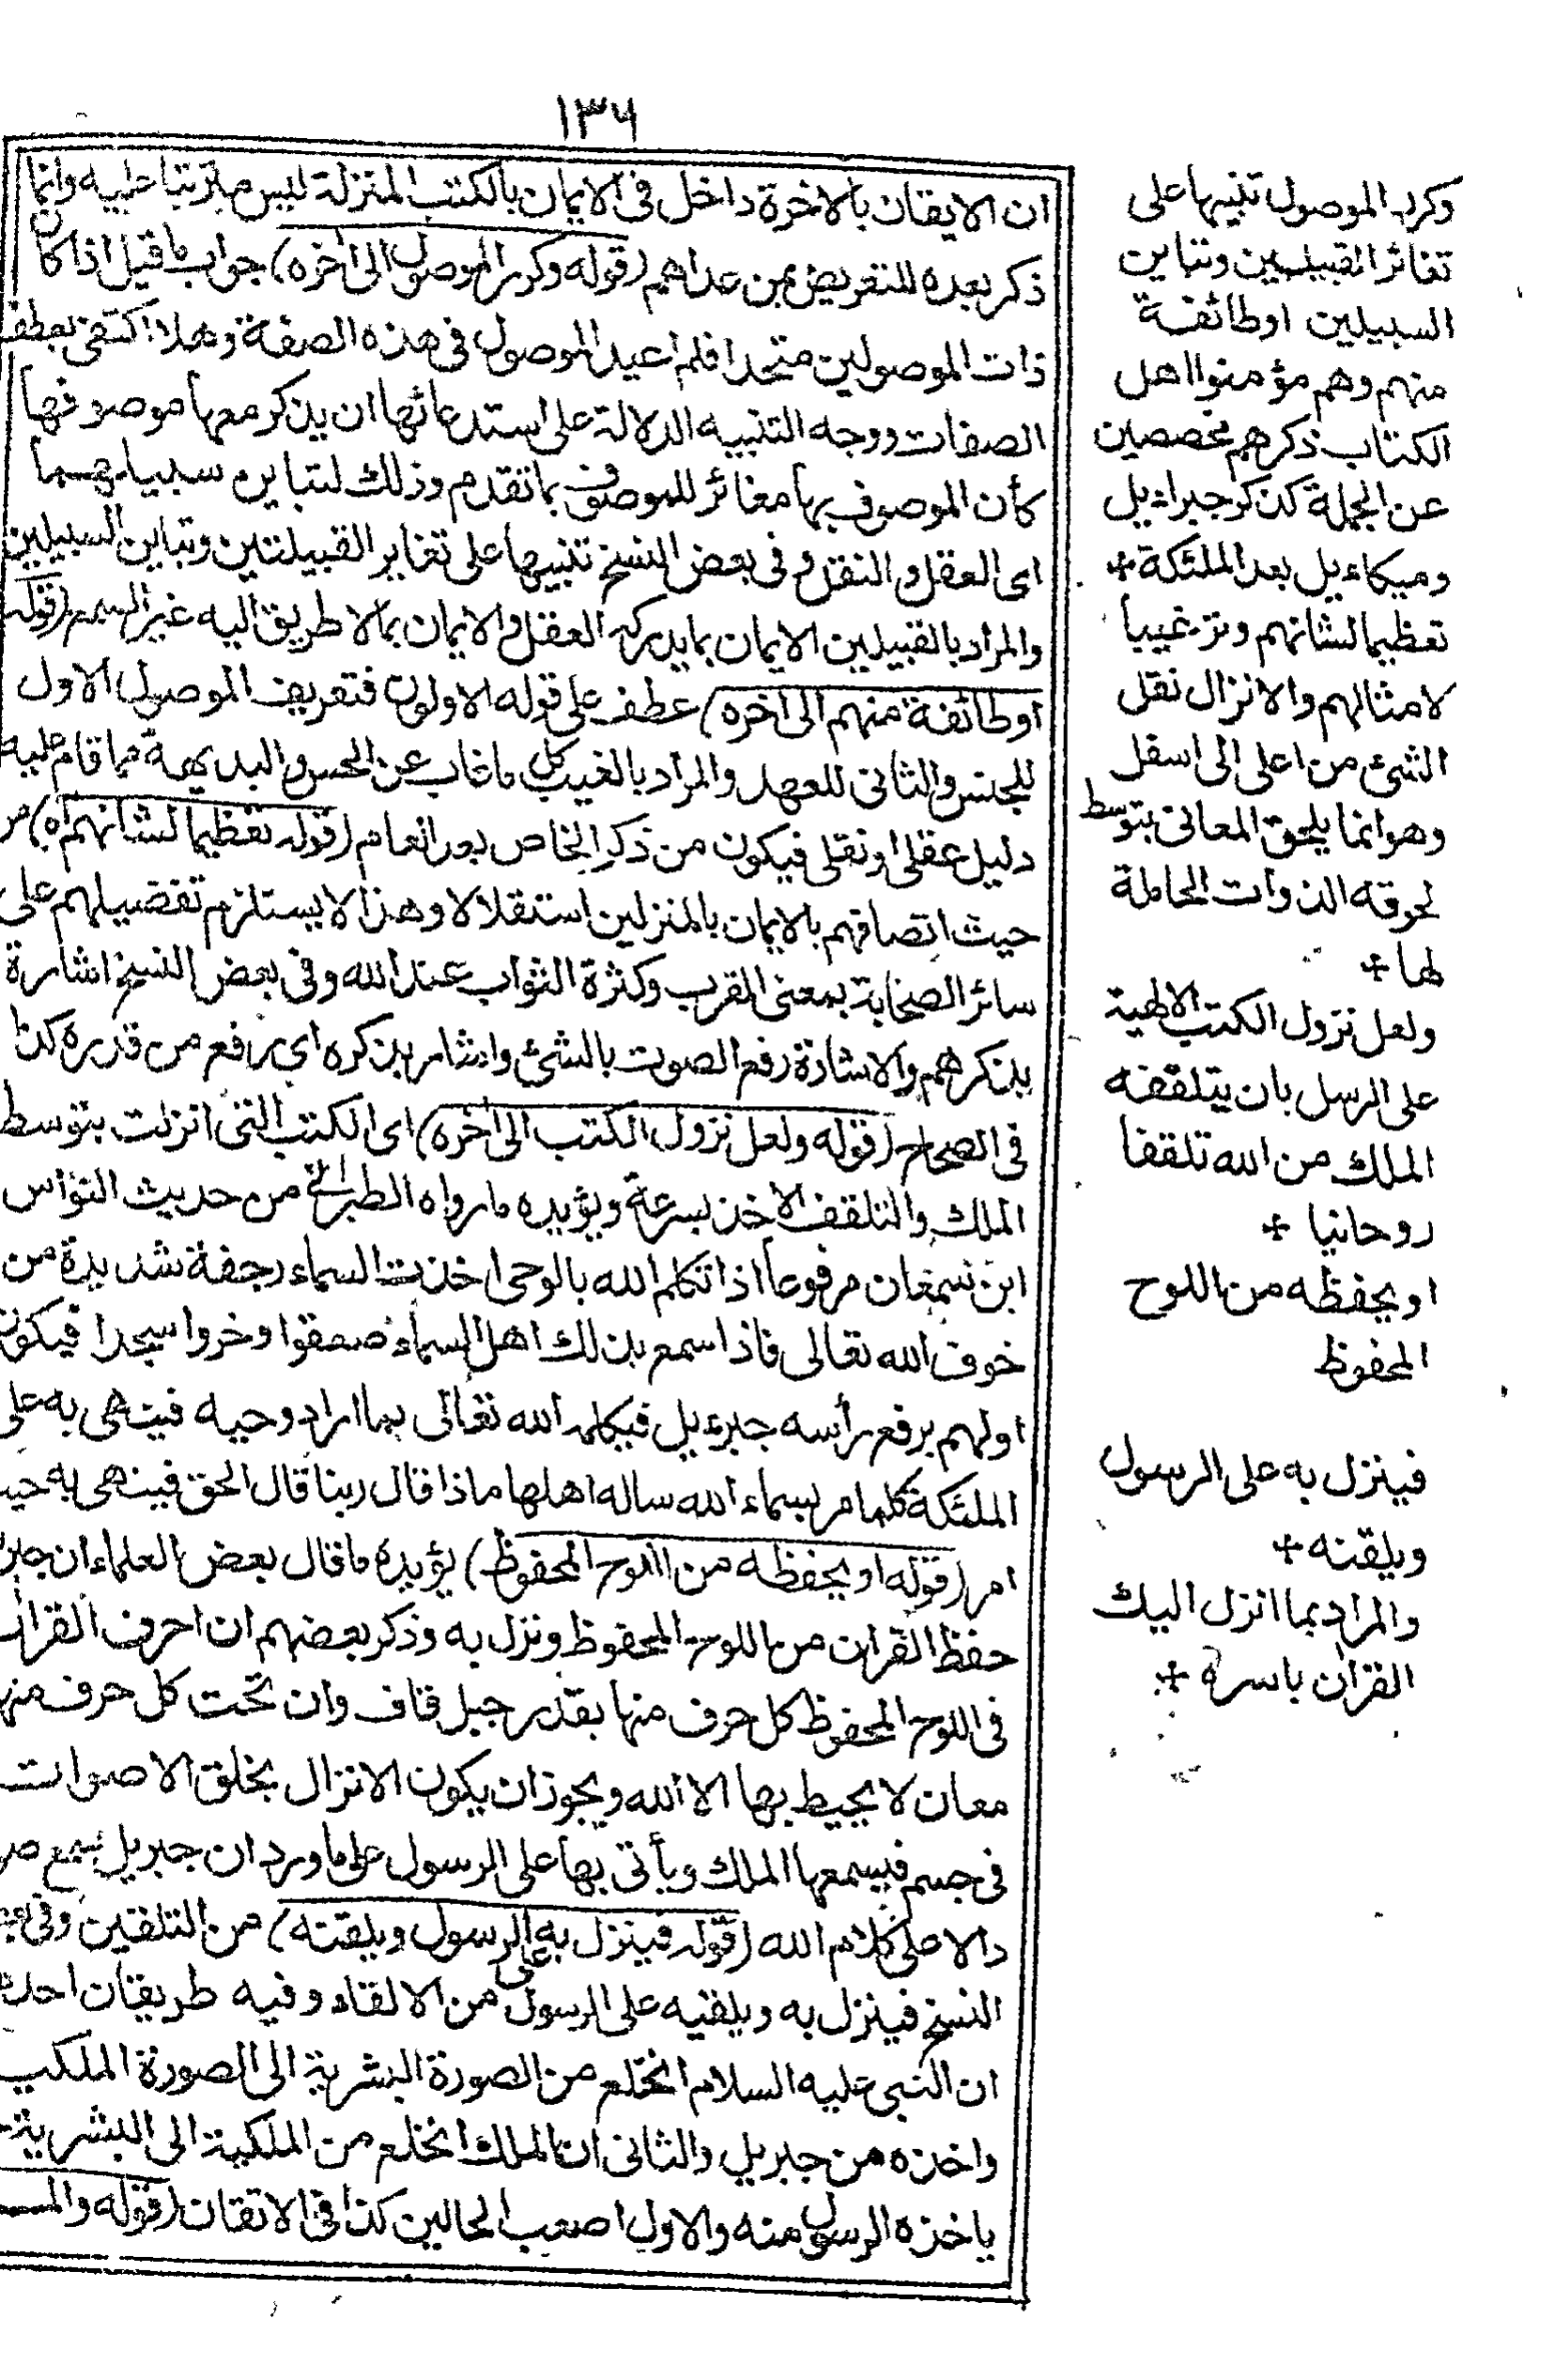 ١٣٦
ان الايقان بالاخرة داخل فى الايمان بالكتب المنزلة ليس مترتبا عليه وانما
ذكر بعده للتعريض بمن عداهم (قوله وكرر الموصول الى اخره) جواب ما قيل اذا كان
ذات الموصولين متحدا فلم اعيد الموصول فى هذه الصفة وهلا اكتفى بعطف
الصفات ووجه التنبيه الدلالة على استدعائها ان يذكر معها موصوفها
كأن الموصوف بها مغائر للموصوف بما تقدم وذلك لتباين سبيلهما
اى العقل والنقل و فى بعض النسخ تنبيها على تغاير القبيلتين وتباين السبيلين
والمراد بالقبيلين الايمان بما يدركه العقل والايمان بما لا طريق اليه غير السمع (قوله
او طائفة منهم الى اخره) عطف على قوله الاولون فتعريف الموصول الاول
للجنس والثانى للعهد والمراد بالغيب كل ما غاب عن الحس والبديهة مما قام عليه
دليل عقلى او نقلى فيكون من ذكر الخاص بعد العام (قوله تعظيما لشانهم اه) من
حيث اتصافهم بالايمان بالمنزلين استقلالا وهذا لا يستلزم تفضيلهم على
سائر الصحابة بمعنى القرب وكثرة الثواب عند الله وفى بعض النسخ اشارة
بذكرهم والاشارة رفع الصوت بالشئ واشار بذكره اى رفع من قدره كذا
فى الصحاح (قوله ولعل نزول الكتب الى اخره) اى الكتب التى انزلت بتوسط
الملك والتلقف الاخذ بسرعة ويؤيده ما رواه الطبرانى من حديث النواس
ابن سمعان مرفوعا اذا تكلم الله بالوحى اخذت السماء رجفة شديدة من
خوف الله تعالى فاذا سمع بذلك اهل السماء صعقوا وخروا سجدا فيكون
اولهم يرفع رأسه جبرءيل فيكلمه الله تعالى بما اراد وحيه فينهى به على
الملئكة كلما مر بسماء الله ساله اهلها ماذا قال ربنا قال الحق فينهى به حيث
امر (قوله او يحفظه من اللوح المحفوظ) يؤيده ما قال بعض العلماء ان جبر
حفظ القران من اللوح المحفوظ ونزل به وذكر بعضهم ان احرف القران
فى اللوح المحفوظ كل حرف منها بقدر جبل قاف وان تحت كل حرف منها
معان لا يحيط بها الا الله ويجوز ان يكون الانزال بخلق الاصوات
فى جسم فيسمعها الملك ويأتى بها على الرسول على ما ورد ان جبريل يسمع
دالا على كلام الله (قوله فينزل به على الرسول ويلقنه) من التلقين وفى
النسخ فينزل به ويلقيه على الرسول من الالقاء وفيه طريقان احده
ان النبى عليه السلام انخلع من الصورة البشرية الى الصورة الملكي
واخذه من جبريل والثانى ان الملك انخلع من الملكية الى البشرية
ياخذه الرسول منه والاول اصعب الحالين كذا فى الاتقان (قوله والم
وكرر الموصول تنبيها على
تغائر القبيلين وتباين
السبيلين او طائفة
منهم وهم مؤمنوا اهل
الكتاب ذكرهم مخصصين
عن الجملة كذكر جبراءيل
وميكاءيل بعد الملئكة +
تعظيما لشانهم وترغيبا
لامثالهم والانزال نقل
الشئ من اعلى الى اسفل
وهو انما يلحق المعانى بتوسط
لحوقه الذوات الحاملة
لها +
ولعل نزول الكتب الالهية
على الرسل بان يتلقفه
الملك من الله تلقفا
روحانيا +
او يحفظه من اللوح
المحفوظ
فينزل به على الرسول
ويلقنه +
والمراد بما انزل اليك
القران باسره +